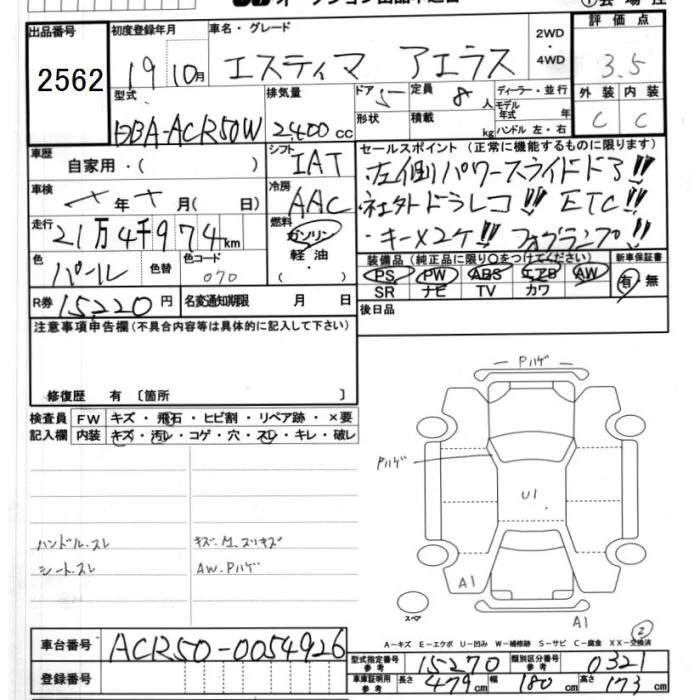 出品番号 2562
初度登録年月 19 10月
車名・グレード エスティマ アエラス
2WD・4WD
評価点 3.5
型式 DBA-ACR50W
排気量 2,400 cc
ドア 5
形状
定員 8 人
積載 kg
ディーラー・並行
モデル年式 年
ハンドル 左・右
外装 内装
C C
車歴 自家用・( )
シフト IAT
セールスポイント (正常に機能するものに限ります)
左側パワースライドドア!!
社外ドラレコ!! ETC!!
・キー×2ケ!! フォグランプ!!
車検 年 月( 日)
冷房 AAC
走行 21万4千974km
燃料 ガソリン・軽油・( )
色 パール 色替
色コード 070
装備品 (純正品に限り〇をつけてください)
PS PW ABS エアB AW
SR ナビ TV カワ
新車保証書 有・無
R券 15220 円
名変通知期限 月 日
後日品
注意事項申告欄 (不具合内容等は具体的に記入して下さい)
修復歴 有 〔箇所 〕
検査員記入欄
FW キズ・飛石・ヒビ割・リペア跡・×要
内装 キズ・汚レ・コゲ・穴・スレ・キレ・破レ
Pハゲ
Pハゲ
U1
ハンドル.スレ
シート.スレ
AW.Pハゲ
A1
スペア
A1
2
A-キズ E-エクボ U-凹み W-補修跡 S-サビ C-腐食 XX-交換済
車台番号 ACR50-0054926
登録番号
型式指定番号 参考 15270
類別区分番号 参考 0321
車庫証明用 参考 長さ 479cm 幅 180cm 高さ 173cm